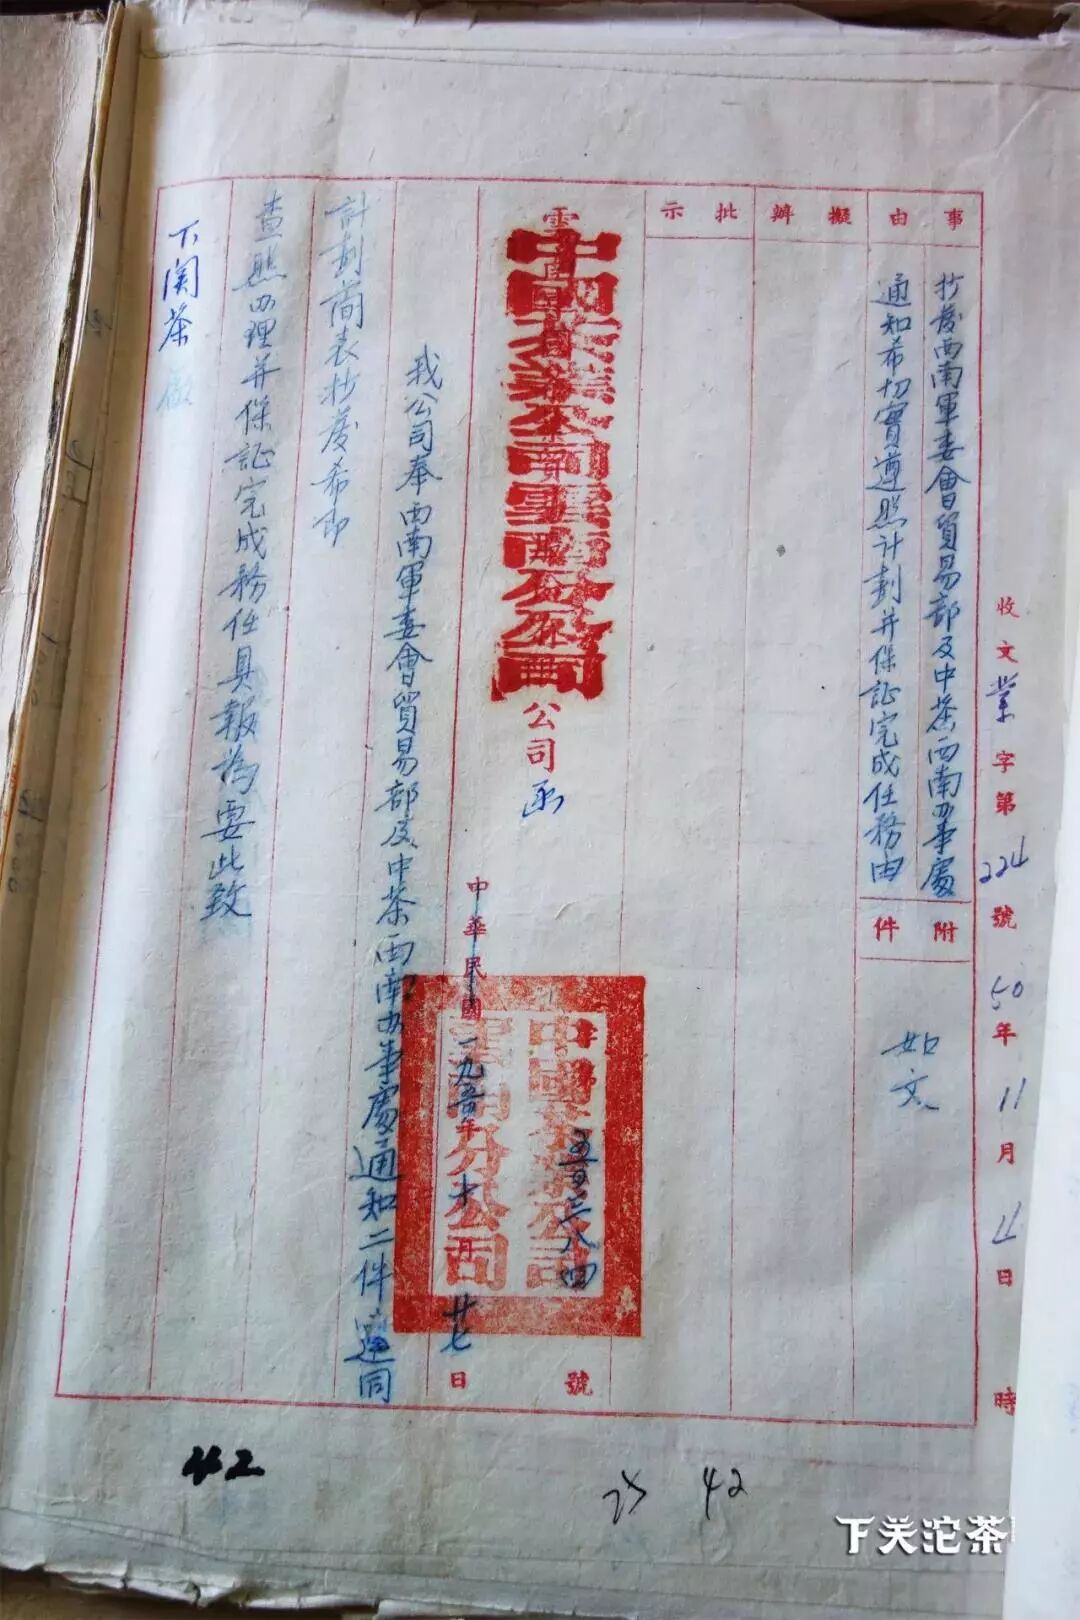 收文業字第224號50年11月4日 時
事由
抄發西南軍委會貿易部及中茶西南办事處
通知希切實遵照计劃并保证完成任務由
附件
如文
擬辦
批示
中國茶業公司雲南分公司
公司函
號
中華民國一九五〇年十月廿七日
中國茶業公司
雲南分公司
我公司奉西南軍委會貿易部及中茶西南办事處通知二件連同
計劃简表抄發希即
查照办理并保证完成務任具報為要此致
下関茶廠
42
42
下关沱茶